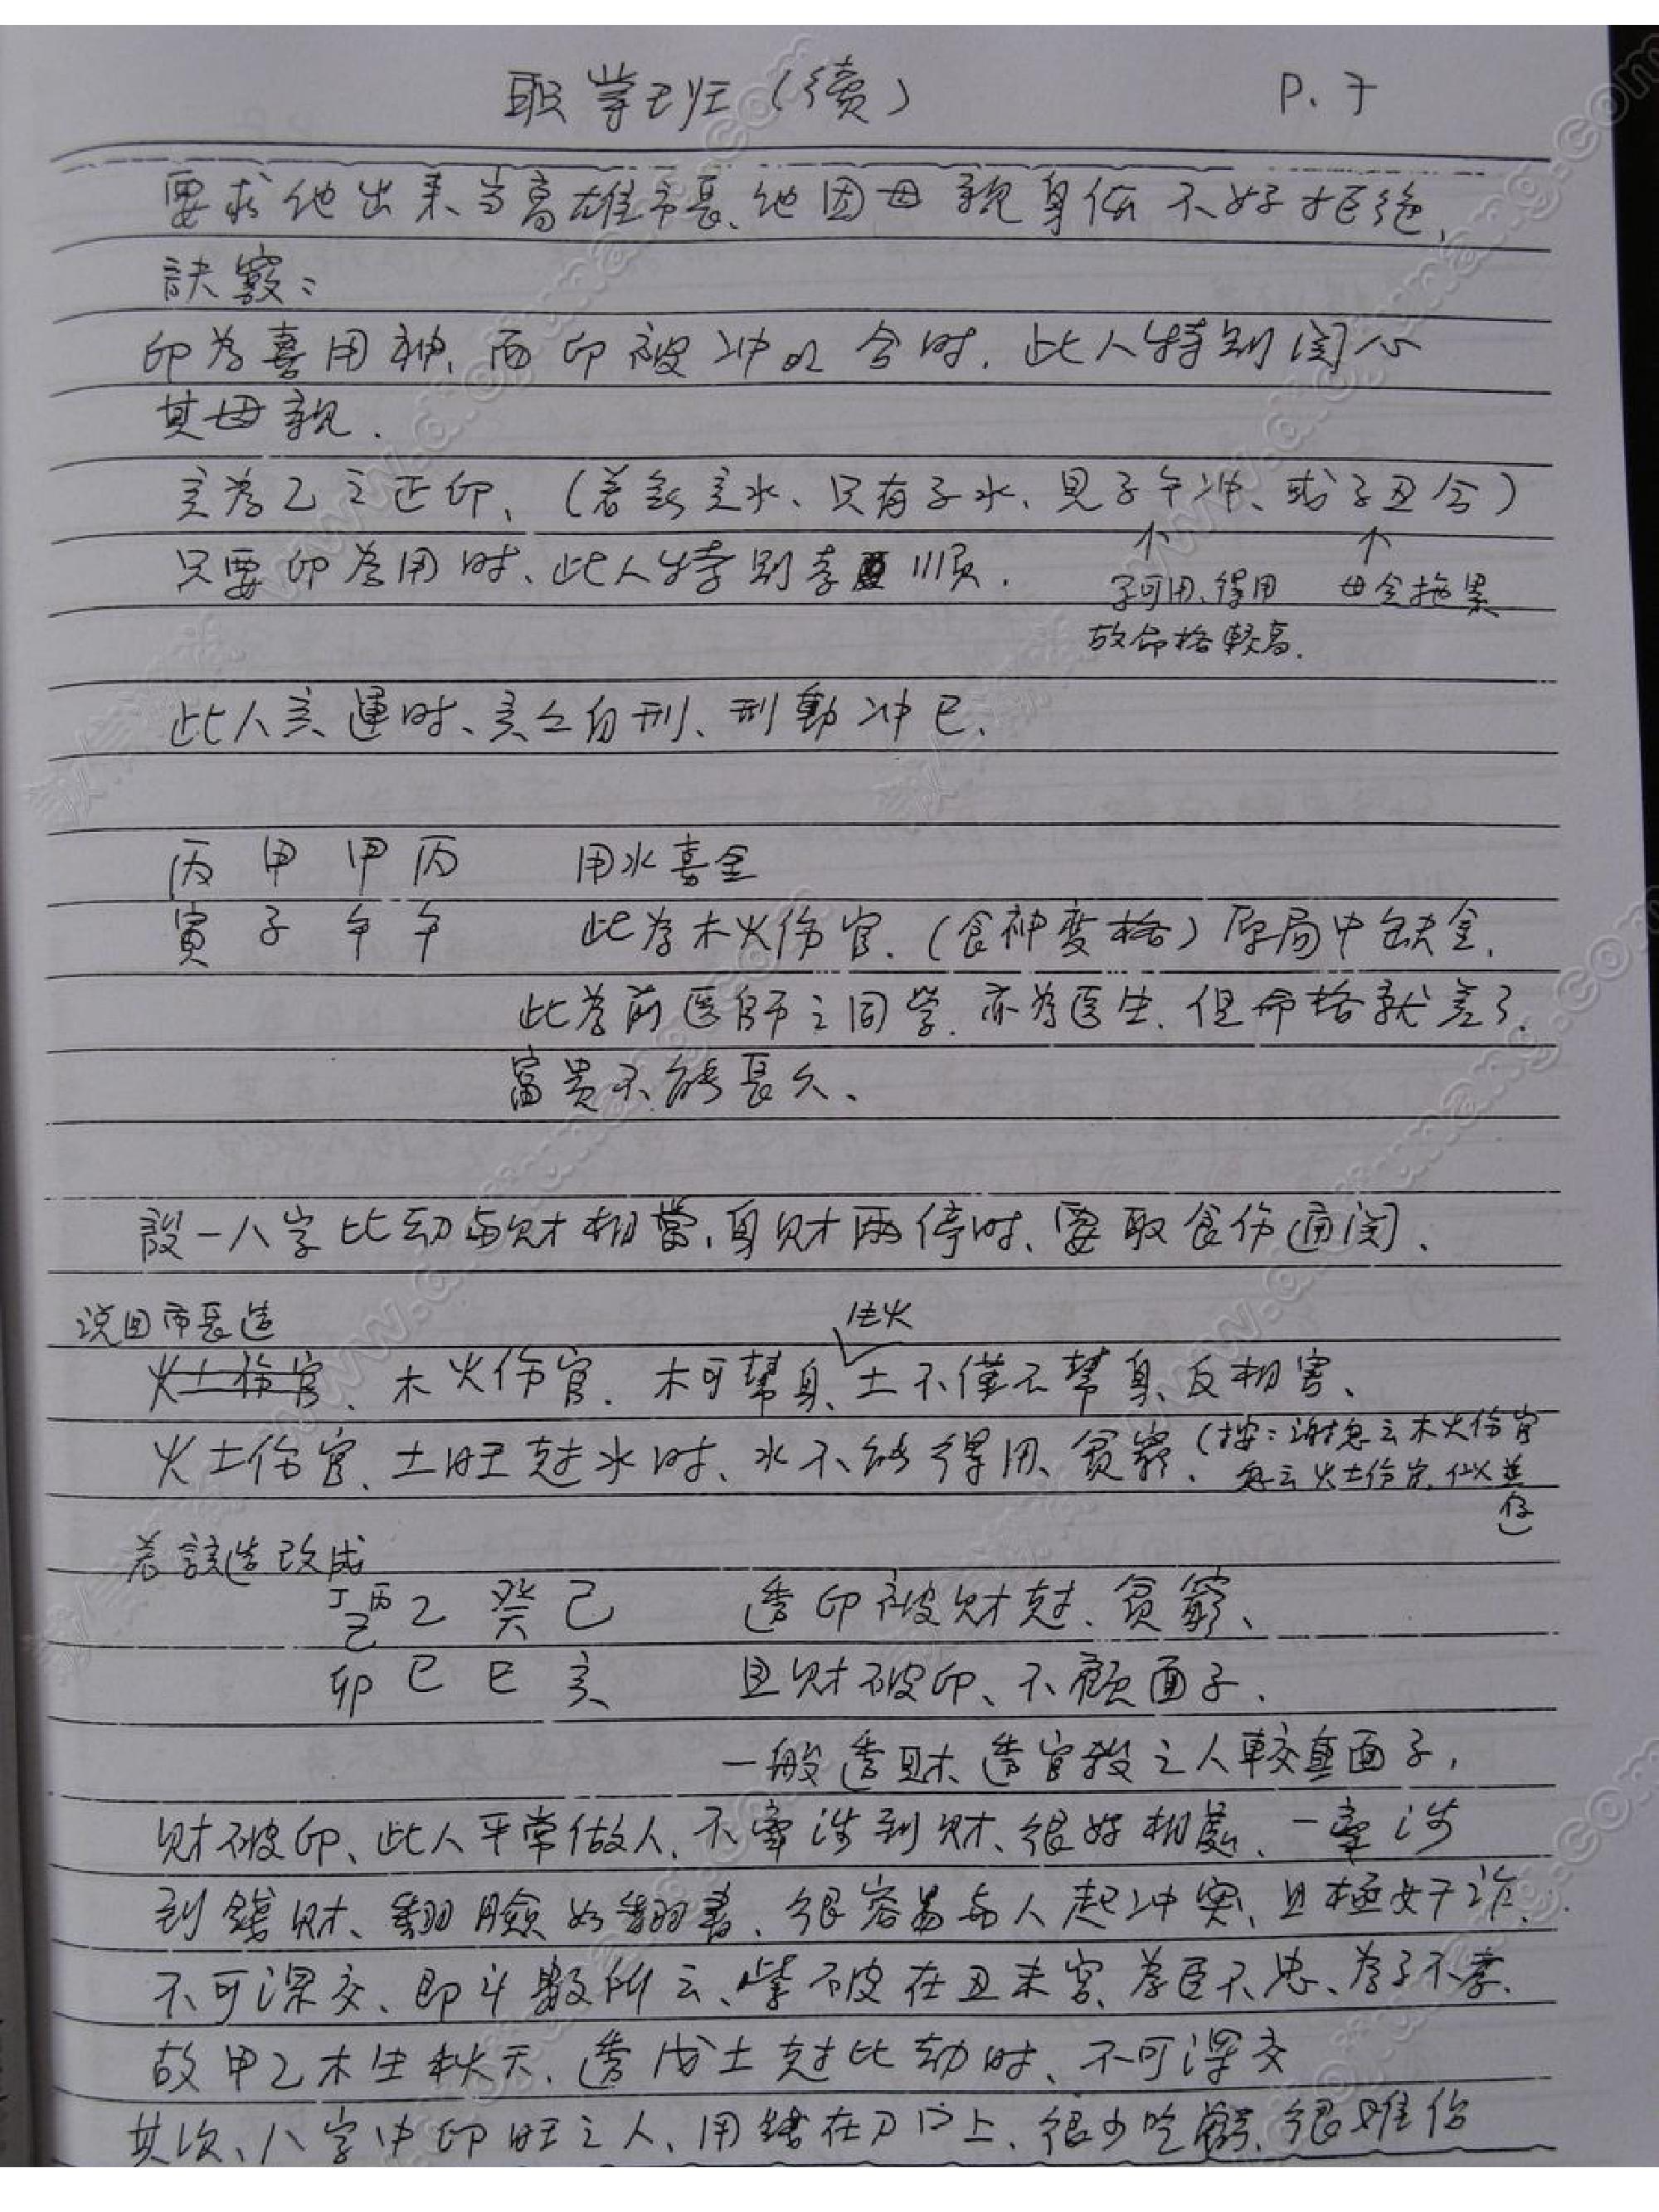 职業班（續） P.7
要求他出来当高雄市長、他因母親身体不好拒絕.
訣竅：
印为喜用神、而印被冲以合时.此人特别関心
其母親.
亥为乙之正印、（若無亥水、只有子水、見子午冲、或子丑合）
只要印为用时、此人特别孝順.
子可用、得用 母会拖累
故命格較高.
此人亥運时、亥亥自刑、刑動冲巳、
丙 甲 甲 丙 用水喜金
寅 子 午 午 此为木火伤官.（食神变格）原局中缺金.
此为前医師之同学.亦为医生.但命格就差了.
富贵不能長久、
設一八字比劫与财相當、身财兩停时、要取食伤通関、
说回市長造
生火
火土伤官、木火伤官.木可幫身、土不僅不幫身、反相害、
火土伤官、土旺尅水时、水不能得用、貧窮、（按：謝忽云木火伤官
忽云火土伤官.似並
存）
若該造改成
丁 丙
己 乙 癸 己 透印被财尅、貧窮、
卯 巳 巳 亥 且财破印、不顧面子.
一般透財、透官殺之人較重面子，
财破印、此人平常做人、不牽涉到财、很好相處、一牽涉
到錢财、翻臉如翻書、很容易与人起冲突、且極奸诈、
不可深交、即斗數所云、紫破在丑未宫、为臣不忠、为子不孝.
故甲乙木生秋天、透戊土尅比劫时、不可深交
其次、八字中印旺之人、用錢在刀口上、很少吃虧、很难伤